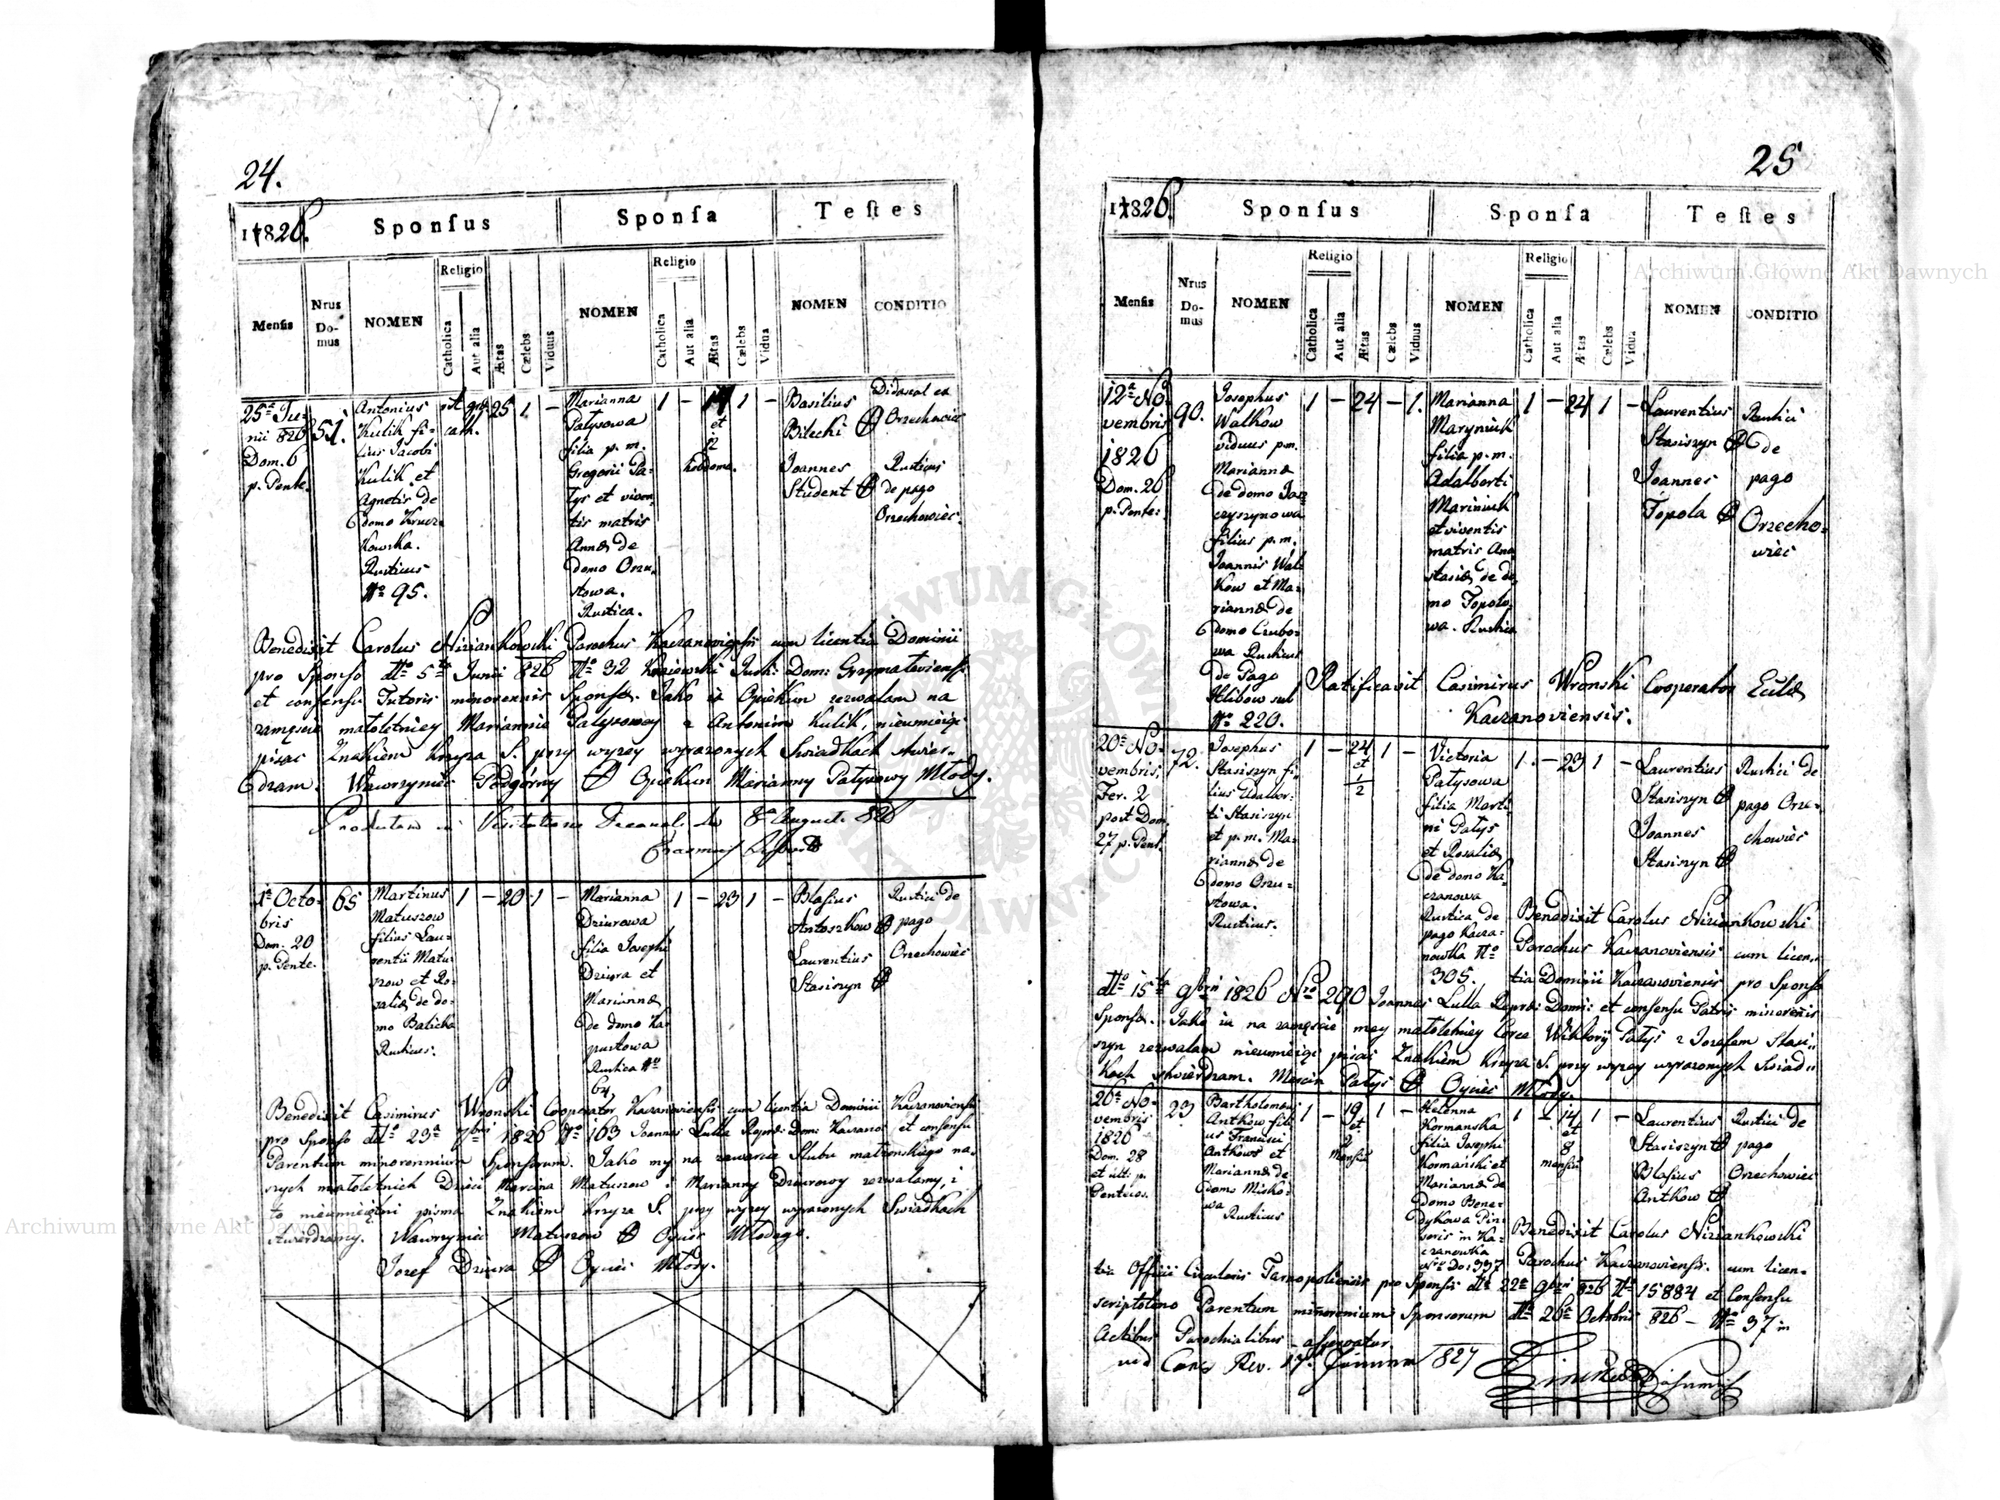 24.
1826.
Sponſus
Sponſa
Teſtes
Menſis
Nrus Do-mus
NOMEN
Religio
Catholica
Aut alia
Ætas
Cælebs
Viduus
NOMEN
Religio
Catholica
Aut alia
Ætas
Cælebs
Vidua
NOMEN
CONDITIO
25ª Ju-
nii 826
Dom. 6
p. Pente.
51.
Antonius
Kulik fi-
lius Jacobi
Kulik et
Agnetis de
domo Krucz-
kowska.
Rusticus
Nº 95.
rit. gr.
cath.
25
1.
-
Marianna
Patysowa
filia p. m.
Gregorii Pa-
tys et viven-
tis matris
Annæ de
domo Orzu-
stowa.
Rustica.
1
-
et
12
hebdoma.
1
-
Basilius
Bilecki
Joannes
Student
Orzechowiec
Rusticus
de pago
Orzechowiec.
Benedixit Carolus Niziankowski Parochus Kaczanoviensis cum licentia Dominii
pro Sponso dtto 5ta Junii 826 Nº 32
et consensu Tutoris minorennis Sponsæ. Jako ia Opiekun zezwalam na
zamęscie małoletniey Marianni Patysowey z Antonim Kulik nieumieiąc
pisać Znakiem Krzyża S. przy wyzey wyrażonych Swiadkach stwier-
dzam. Wawrzyniec Podgórny Opiekun Marianny Patysowy Młody.
Productum in Visitatione Decanali die 8ª Augusti 826
1ª Octo-
bris
Dom. 20
p. Pente.
65
Martinus
Matuszow
filius Lau-
rentii Matu-
szow et Ro-
saliæ de do-
mo Balicka
Rusticus.
1
-
20
1
-
Marianna
Dziurowa
filia Josephi
Dziura et
Mariannæ
de domo Ka-
pustowa
Rustica Nº
1
-
23
1
-
Blasius
Antoszkow
Laurentius
Stasiszyn
Rustici de
pago
Orzechowiec
Benedixit Casimirus Wronski Cooperator Kaczanoviensis cum licentia Dominii Kaczanoviensis
pro Sponso dtto 23ª 7bris 1826 Nº 163 Joannes Lulla et consensu
Parentum minorennium Sponsorum. Jako my na zawarcie Slubu małzenskiego na-
szych małoletnich Dzieci Marcina Matuszow i Marianny Dziurowy zezwalamy, i
to nieumieiętni pisma Znakiem Krzyża S. przy wyzey wyrażonych Swiadkach
stwierdzamy. Wawrzyniec Matuszow Oyciec Młodego.
Jozef Dziura Oyciec Młody.
25
1826.
Sponſus
Sponſa
Teſtes
Menſis
Nrus Do-mus
NOMEN
Religio
Catholica
Aut alia
Ætas
Cælebs
Viduus
NOMEN
Religio
Catholica
Aut alia
Ætas
Cælebs
Vidua
NOMEN
CONDITIO
12ª No-
vembris
1826
Dom. 26
p. Pente:
90.
Josephus
Walkow
viduus p.m.
Marianna
de domo
filius p. m.
Joannis Wal-
kow et Ma-
riannæ de
domo Czubo-
wa Rusticus
de Pago
Klibow sub
Nº 220.
1
-
24
-
1.
Marianna
Maryniuk
filia p. m.
Adalberti
Mariniuk
et viventis
matris Ana-
stasiæ de do-
mo Topolo-
wa. Rustica
1
-
24
1
-
Laurentius
Stasiszyn
Joannes
Topola
Rustici
de
pago
Orzecho-
wiec
Ratificavit Casimirus Wronski Cooperator Eclæ
Kaczanoviensis.
20ª No-
vembris,
Fer. 2
post Dom.
27 p. Pent.
72.
Josephus
Stasiszyn fi-
lius Adalber-
ti Stasiszyn
et p. m. Ma-
riannæ de
domo Orzu-
stowa.
Rusticus.
1
-
24
et
1/2
1
-
Victoria
Patysowa
filia Marti-
ni Patys
et Rosaliæ
de domo Ka-
czanowa
Rustica de
pago Kacza-
nowka Nº
305.
1.
-
23
1
-
Laurentius
Stasiszyn
Joannes
Stasiszyn
Rustici de
pago Orze-
chowiec
Benedixit Carolus Niziankowski
Parochus Kaczanoviensis cum licen-
tia Dominii Kaczanoviensis pro Sponso
dtto 15ta 9bris 1826 Nro 290 Joannes Lulla et consensu Patris minorennis
Sponsæ. Jako ia na zamęscie mey małoletniey Corce Wiktoryi Patys z Jozefem Stasi-
szyn zezwalam nieumieiąc pisać Znakiem Krzyża S. przy wyzey wyrażonych Swiad-
kach stwierdzam. Marcin Patys Oyciec Młody.
26ª No-
vembris
1826
Dom. 28
et ulti. p.
Pentecos.
23
Bartholomeus
Antkow fili-
us Francisci
Antkows et
Mariannæ de
domo Misko-
wa
Rusticus
1
-
19
et
2
mensiu
1
-
Helenna
Kormanska
filia Josephi
Kormański et
Mariannæ de
domo Bene-
dykowa Pin-
in Ka-
czanowka
Nro Do: 337
1
-
14
et
8
mensiu
1
-
Laurentius
Stasiszyn
Blasius
Antkow
Rustici de
pago
Orzechowiec
Benedixit Carolus Niziankowski
Parochus Kaczanoviensis. cum licen-
tia Officii Circularis Tarnopoliensis pro Sponsis dtto 22ª 9bris 826 Nº 15884 et Consensu
scriptoteno Parentum minorenium Sponsorum dtto 26ª Octobris 826 - Nº 37 in
Actibus Parochialibus asservatur
827
Archiwum Główne Akt Dawnych
Archiwum Główne Akt Dawnych